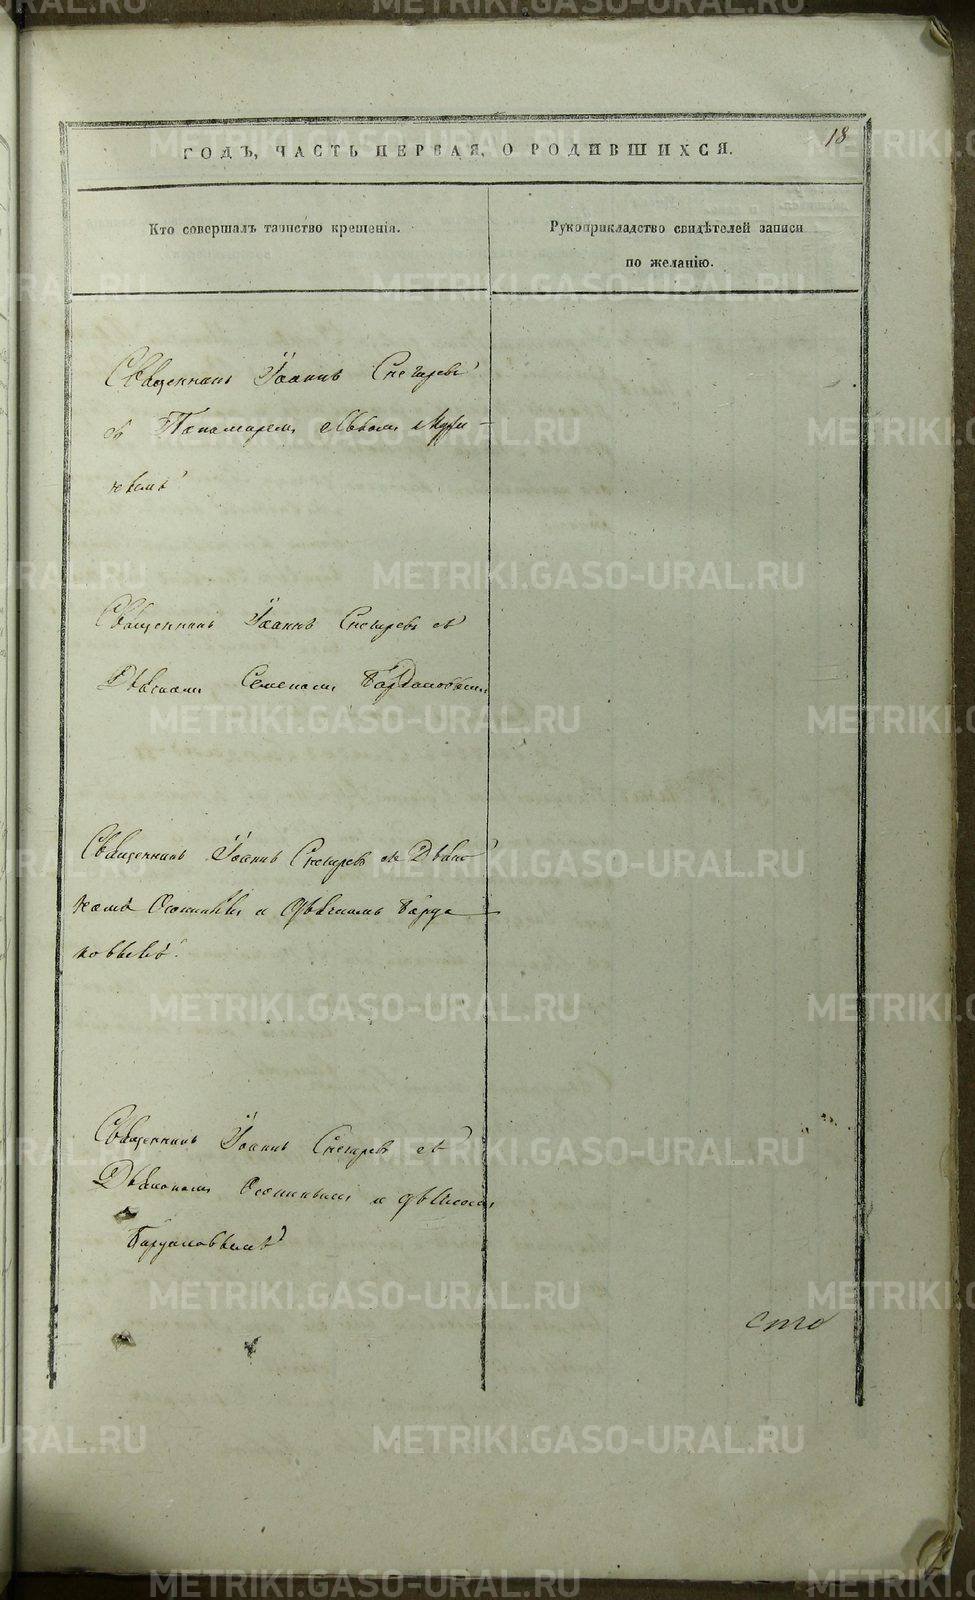 18
ГОДЪ, ЧАСТЬ ПЕРВАЯ, О РОДИВШИХСЯ.
Кто совершалъ таинство крещенія.
Рукоприкладство свидѣтелей записи
по желанію.
Священникъ Іоаннъ Снегирев
съ Пономаремъ
Священникъ Іоаннъ Снегиревъ съ
Дьякономъ Семеномъ Бардаковымъ
Священникъ Іоаннъ Снегиревъ съ Дьяко
номъ и Дьячкомъ Барда
ковымъ.
Священникъ Іоаннъ Снегиревъ съ
Дьякономъ и
Бардаковымъ
METRIKI.GASO-URAL.RU